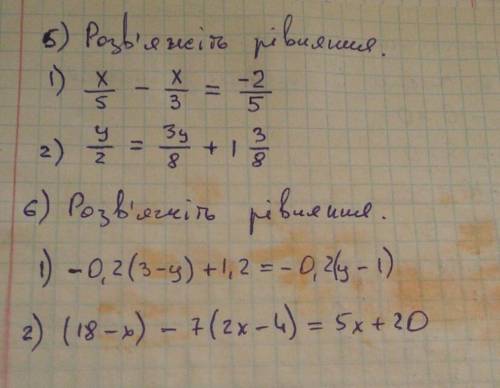 5) Розв'яжіть рівняння.
1) x/5 - x/3 = -2/5
2) y/2 = 3y/8 + 1 3/8
6) Розв'яжіть рівняння.
1) -0,2(3-y)+1,2=-0,2(y-1)
2) (18-x) - 7(2x-4) = 5x+20